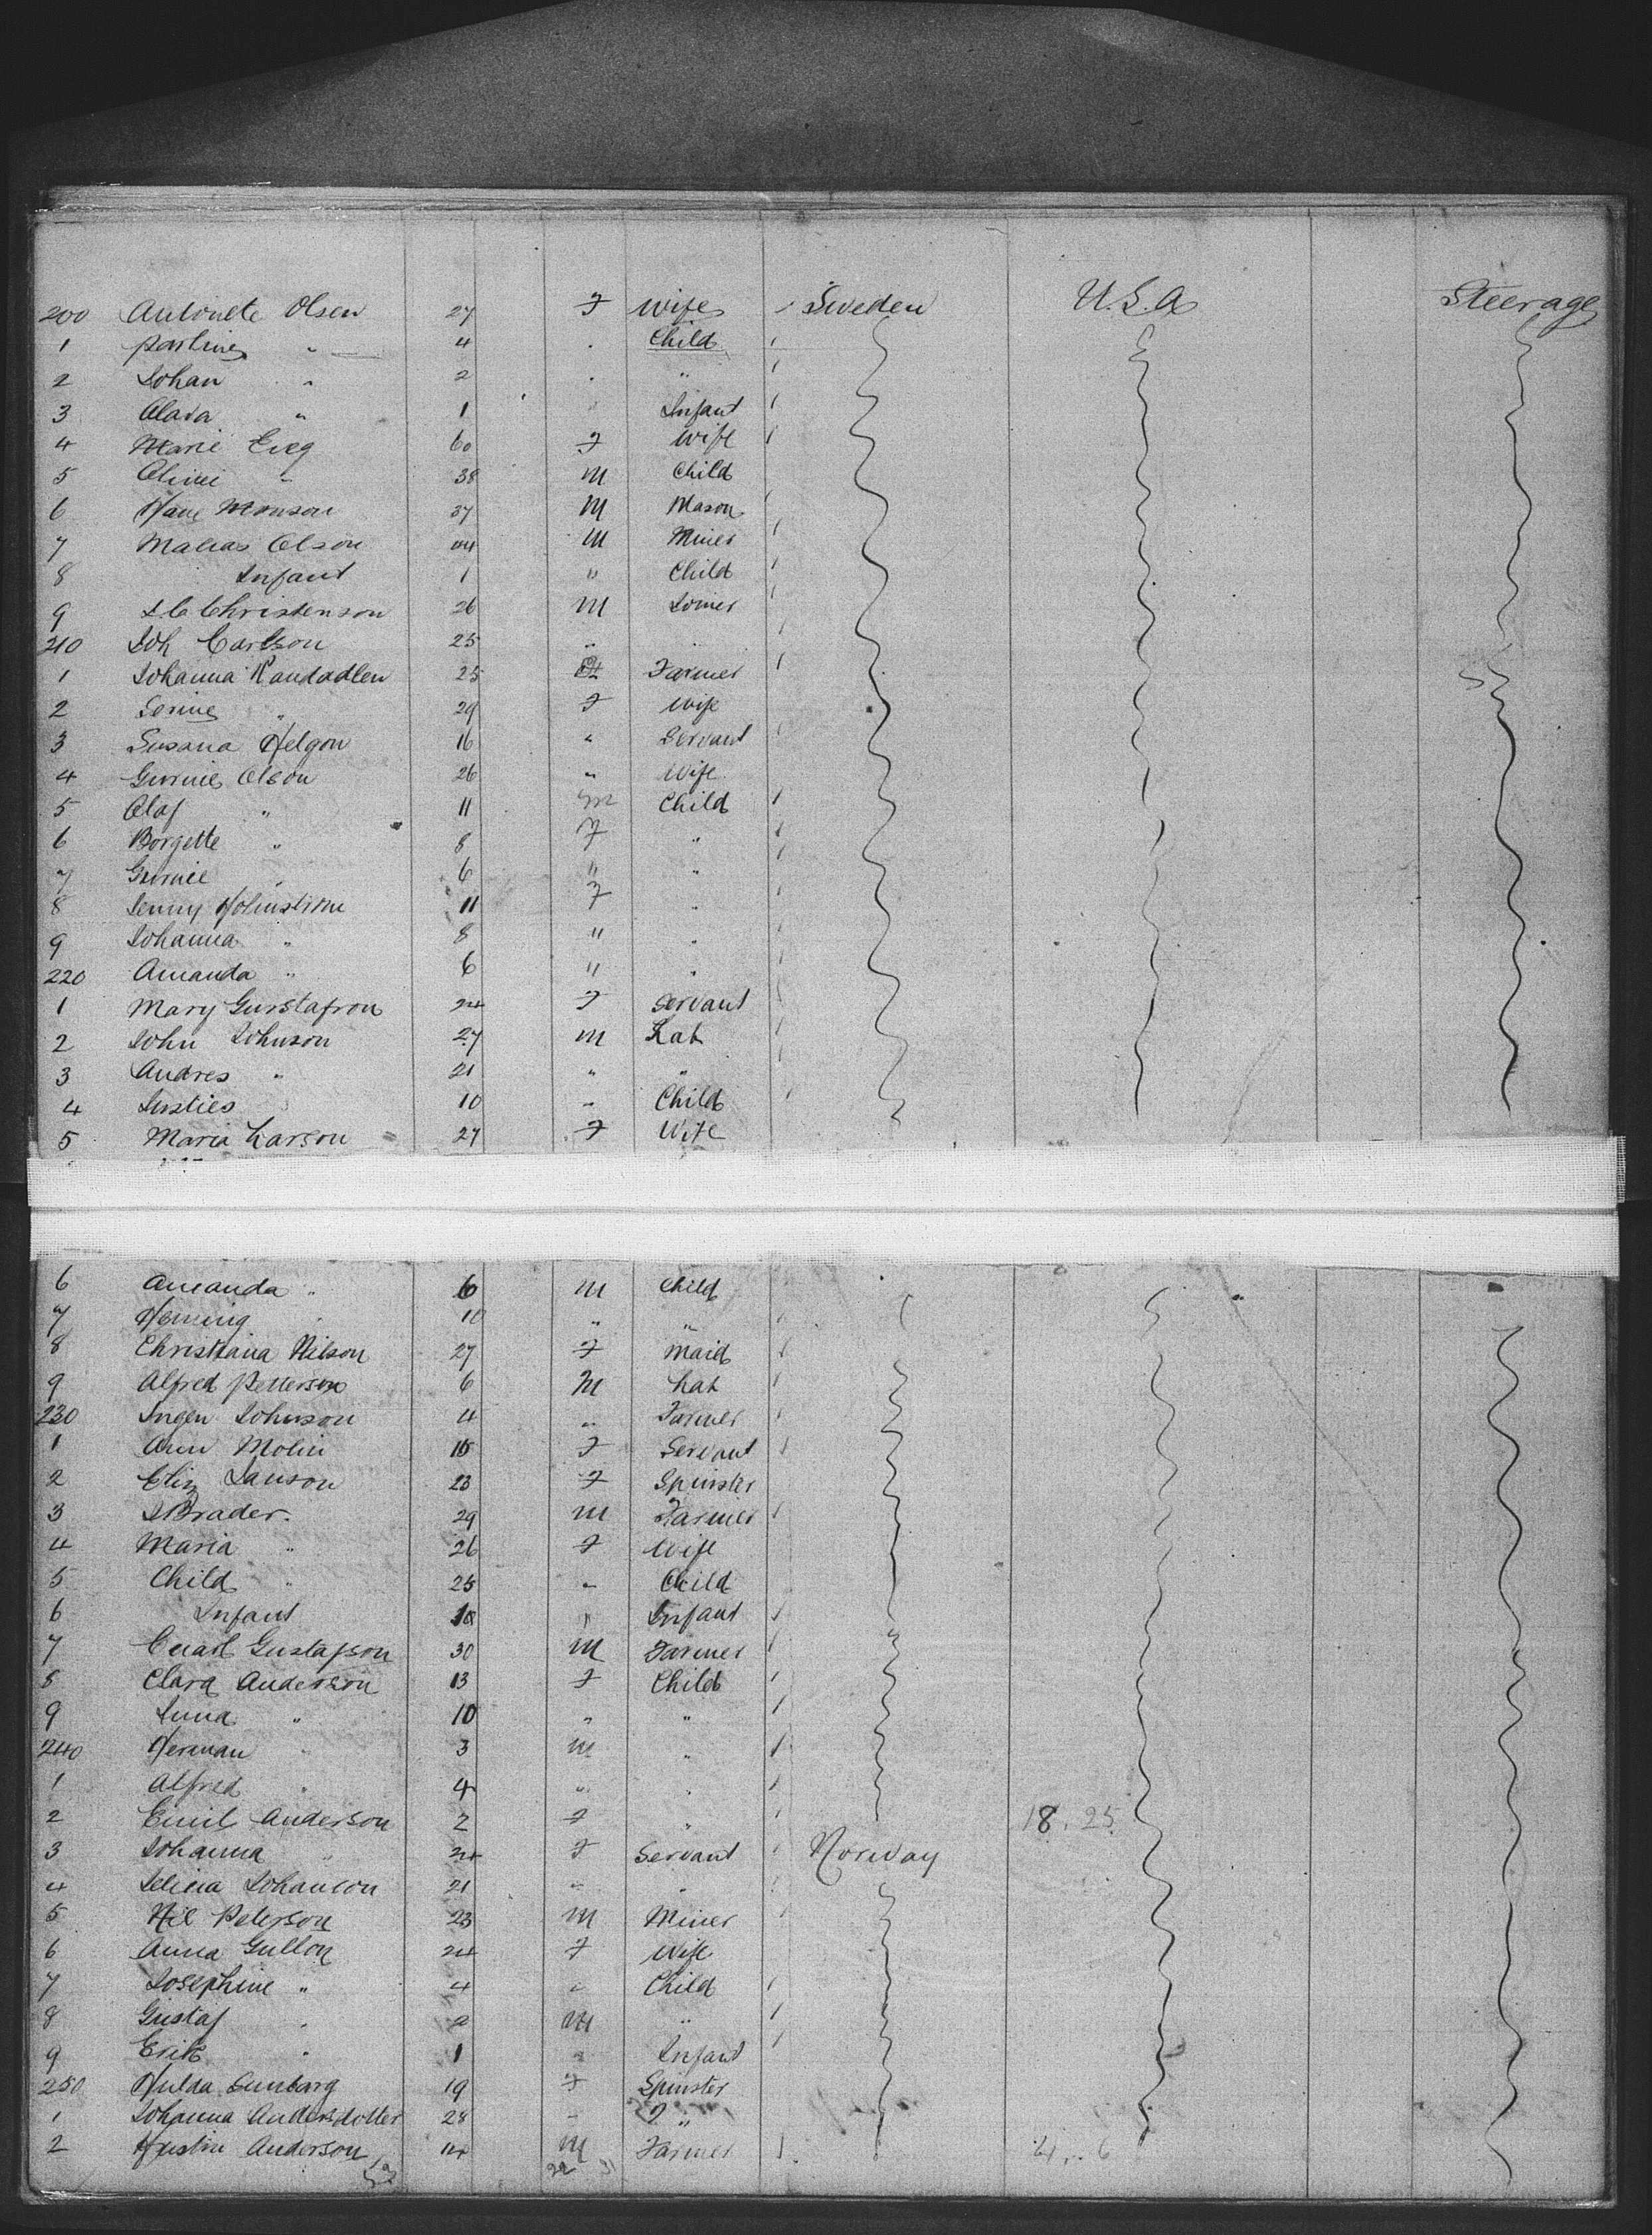 200 Antonete Olsen 27 F Wife Sweden U.S.A Steerage
1 " 4 . Child
2 Johan " 2 . "
3 Clara " 1 " Infant
4 Marie Eieg 60 F Wife
5 " 38 M Child
6 Hans Monson 37 M Mason
7 Olson 44 M Miner
8 Infant 1 " Child
9 J.C Christenson 26 M Joiner
210 Joh Carlson 25 " "
1 Johanna 25 Farmer
2 Serine " 29 F Wife
3 Susana Helgon 16 " Servant
4 Gurnie Olson 26 " Wife
5 Olaf " 11 M Child
6 Borgette " 8 F "
7 Gurnie " 6 " "
8 Jenny Holmstrom 11 F "
9 Johanna " 8 " "
220 Amanda " 6 " "
1 Mary Gurstafson 24 F Servant
2 John Johnson 27 M Lab
3 Andres " 21 " "
4 10 " Child
5 Maria Larson 27 F Wife
6 Amanda " 6 M Child
7 Heming " 10 " "
8 Christiana Nilson 27 F Maid
9 Alfred Petterson 6 M Lab
230 Ingen Johnson 4 " Farmer
1 Ann Molin 15 F Servant
2 Eliz Janson 23 F Spinster
3 J Brader. 29 M Farmer
4 Maria " 26 F Wife
5 Child " 25 " Child
6 Infant 10 " Infant
7 Gustafson 30 M Farmer
8 Clara Anderson 13 F Child
9 " 10 " "
240 Herman " 3 M "
1 Alfred " 4 " "
2 Emil Anderson 2 F " 18. 25
3 Johanna " 24 F Servant Norway
4 Johanson 21 " "
5 Nil Peterson 23 M Miner
6 Anna Gullon 24 F Wife
7 Josephine " 4 " Child
8 Gustaf " 2 M "
9 Erik " 1 " Infant
250 Hulda Sunbarg 19 F Spinster
1 Johanna Andersdotter 28 " "
2 Anderson 14 M Farmer 4. 6